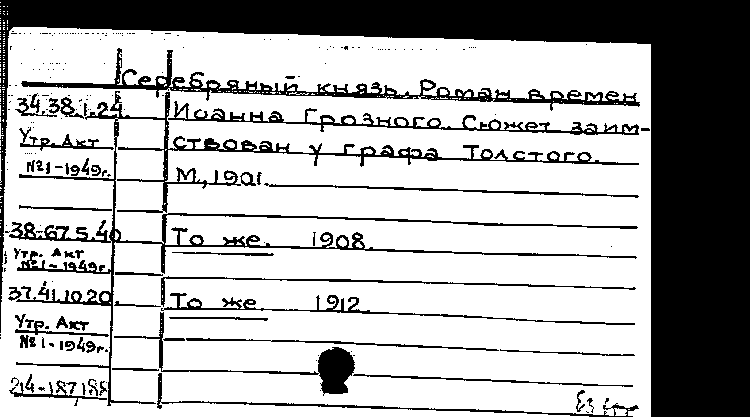 Серебряный князь. Роман времен
34.38.1.24. Иоанна Грозного. Сюжет заим-
Утр. Акт ствован у графа Толстого.
№1-1949г. М., 1901.
38-67.5.40 То же. 1908.
Утр. Акт
№1-1949г.
37.41.10.20. То же 1912.
Утр. Акт
№1-1949г.
214-187,188